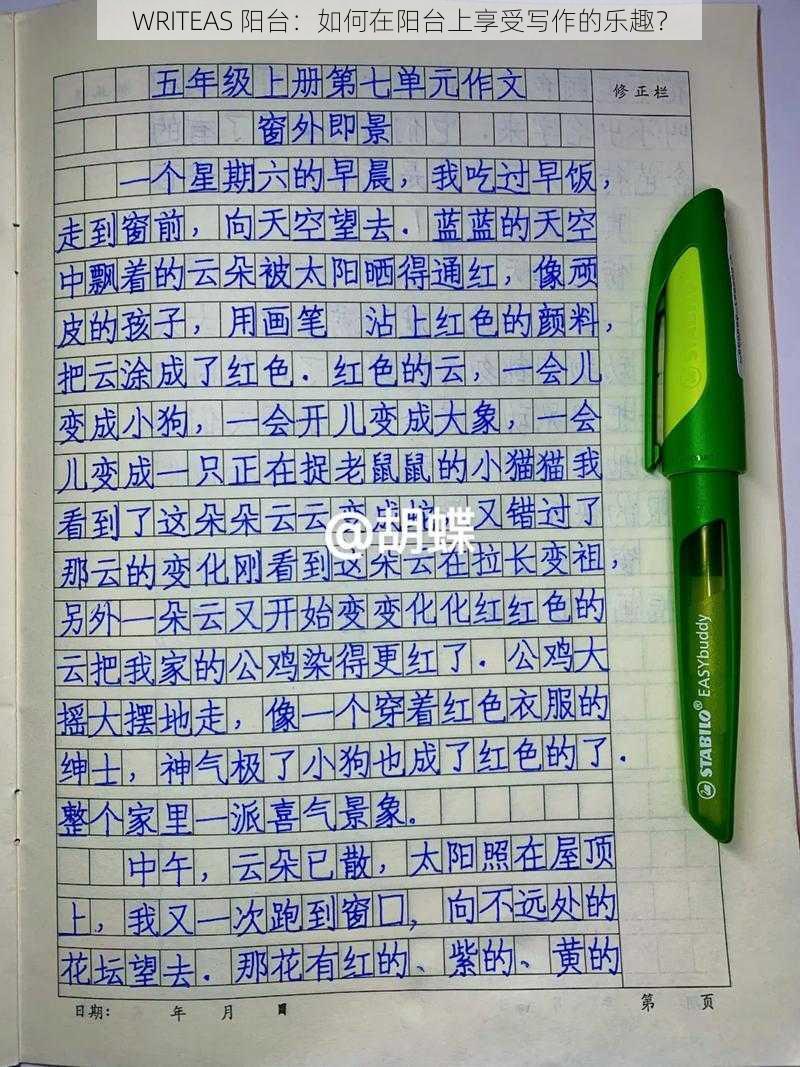 WRITEAS 阳台：如何在阳台上享受写作的乐趣？
五年级上册第七单元作文
修正栏
窗外即景
一个星期六的早晨，我吃过早饭，
走到窗前，向天空望去．蓝蓝的天空
中飘着的云朵被太阳晒得通红，像顽
皮的孩子，用画笔 沾上红色的颜料，
把云涂成了红色．红色的云，一会儿
变成小狗，一会开儿变成大象，一会
儿变成一只正在捉老鼠鼠的小猫猫我
看到了这朵朵云云变成 又错过了
@胡蝶
那云的变化刚看到这朵云在拉长变祖，
另外一朵云又开始变变化化红红色的
云把我家的公鸡染得更红了．公鸡大
摇大摆地走，像一个穿着红色衣服的
绅士，神气极了小狗也成了红色的了．
整个家里一派喜气景象。
中午，云朵已散，太阳照在屋顶
上，我又一次跑到窗口，向不远处的
花坛望去．那花有红的、紫的、黄的
日期： 年 月 日
第 页
STABILO® EASYbuddy